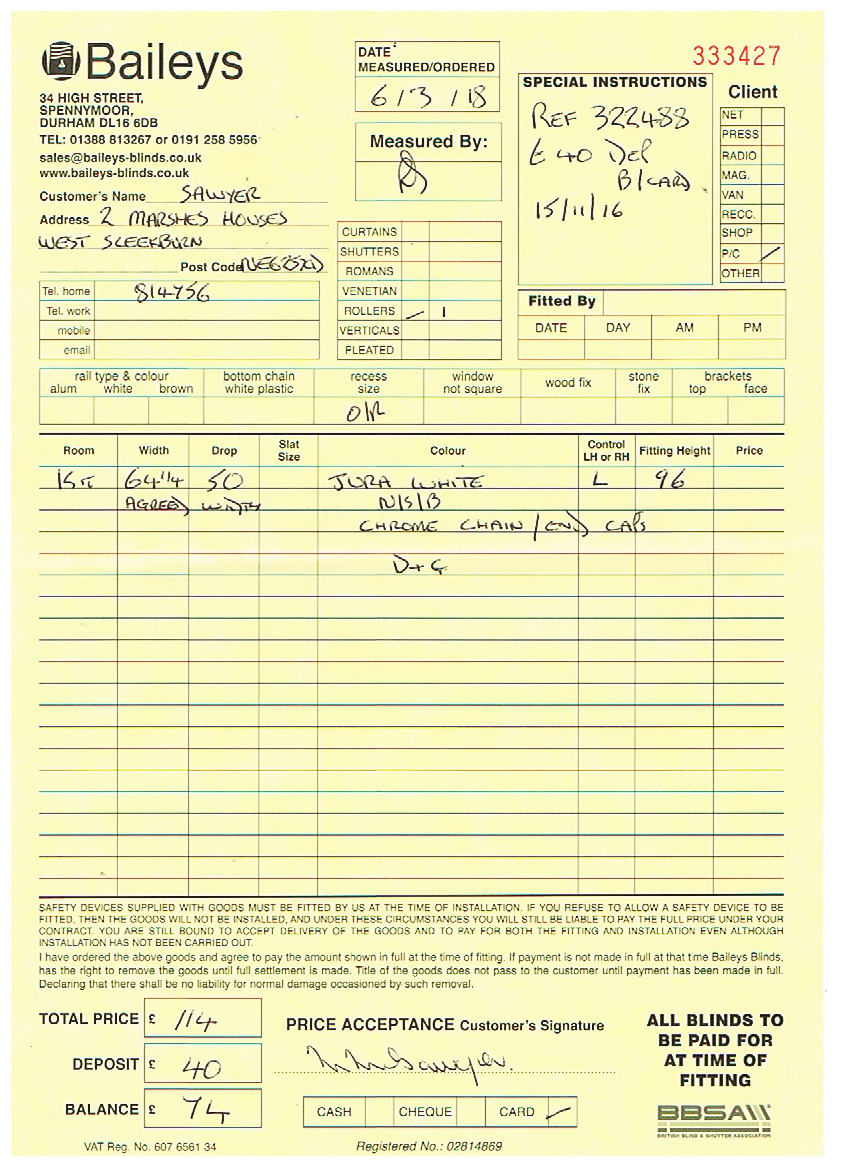 Baileys
34 HIGH STREET,
SPENNYMOOR,
DURHAM DL16 6DB
TEL: 01388 813267 or 0191 258 5956
sales@baileys-blinds.co.uk
www.baileys-blinds.co.uk
Customer's Name SAWYER
Address 2 MARSHES HOUSES
WEST SLEEKBURN
Post Code
Tel. home 814756
Tel. work
mobile
email
DATE
MEASURED/ORDERED
6/3/18
Measured By:
CURTAINS
SHUTTERS
ROMANS
VENETIAN
ROLLERS 1
VERTICALS
PLEATED
333427
SPECIAL INSTRUCTIONS
REF 322488
£40 DEP
B/CARD
15/11/16
Client
NET
PRESS
RADIO
MAG.
VAN
RECC.
SHOP
P/C
OTHER
Fitted By
DATE DAY AM PM
rail type & colour
alum white brown
bottom chain
white plastic
recess
size
window
not square
wood fix
stone
fix
brackets
top face
O/R
Room Width Drop Slat Size Colour Control LH or RH Fitting Height Price
KIT 64 1/4 50 JURA WHITE L 96
AGREED WIDTH N/S/B
CHROME CHAIN / END CAPS
D+G
SAFETY DEVICES SUPPLIED WITH GOODS MUST BE FITTED BY US AT THE TIME OF INSTALLATION. IF YOU REFUSE TO ALLOW A SAFETY DEVICE TO BE
FITTED, THEN THE GOODS WILL NOT BE INSTALLED, AND UNDER THESE CIRCUMSTANCES YOU WILL STILL BE LIABLE TO PAY THE FULL PRICE UNDER YOUR
CONTRACT. YOU ARE STILL BOUND TO ACCEPT DELIVERY OF THE GOODS AND TO PAY FOR BOTH THE FITTING AND INSTALLATION EVEN ALTHOUGH
INSTALLATION HAS NOT BEEN CARRIED OUT.
I have ordered the above goods and agree to pay the amount shown in full at the time of fitting. If payment is not made in full at that time Baileys Blinds,
has the right to remove the goods until full settlement is made. Title of the goods does not pass to the customer until payment has been made in full.
Declaring that there shall be no liability for normal damage occasioned by such removal.
TOTAL PRICE £ 114
DEPOSIT £ 40
BALANCE £ 74
PRICE ACCEPTANCE Customer's Signature
Sawyer.
CASH CHEQUE CARD
ALL BLINDS TO
BE PAID FOR
AT TIME OF
FITTING
BBSA
BRITISH BLIND & SHUTTER ASSOCIATION
VAT Reg. No. 607 6561 34
Registered No.: 02814869